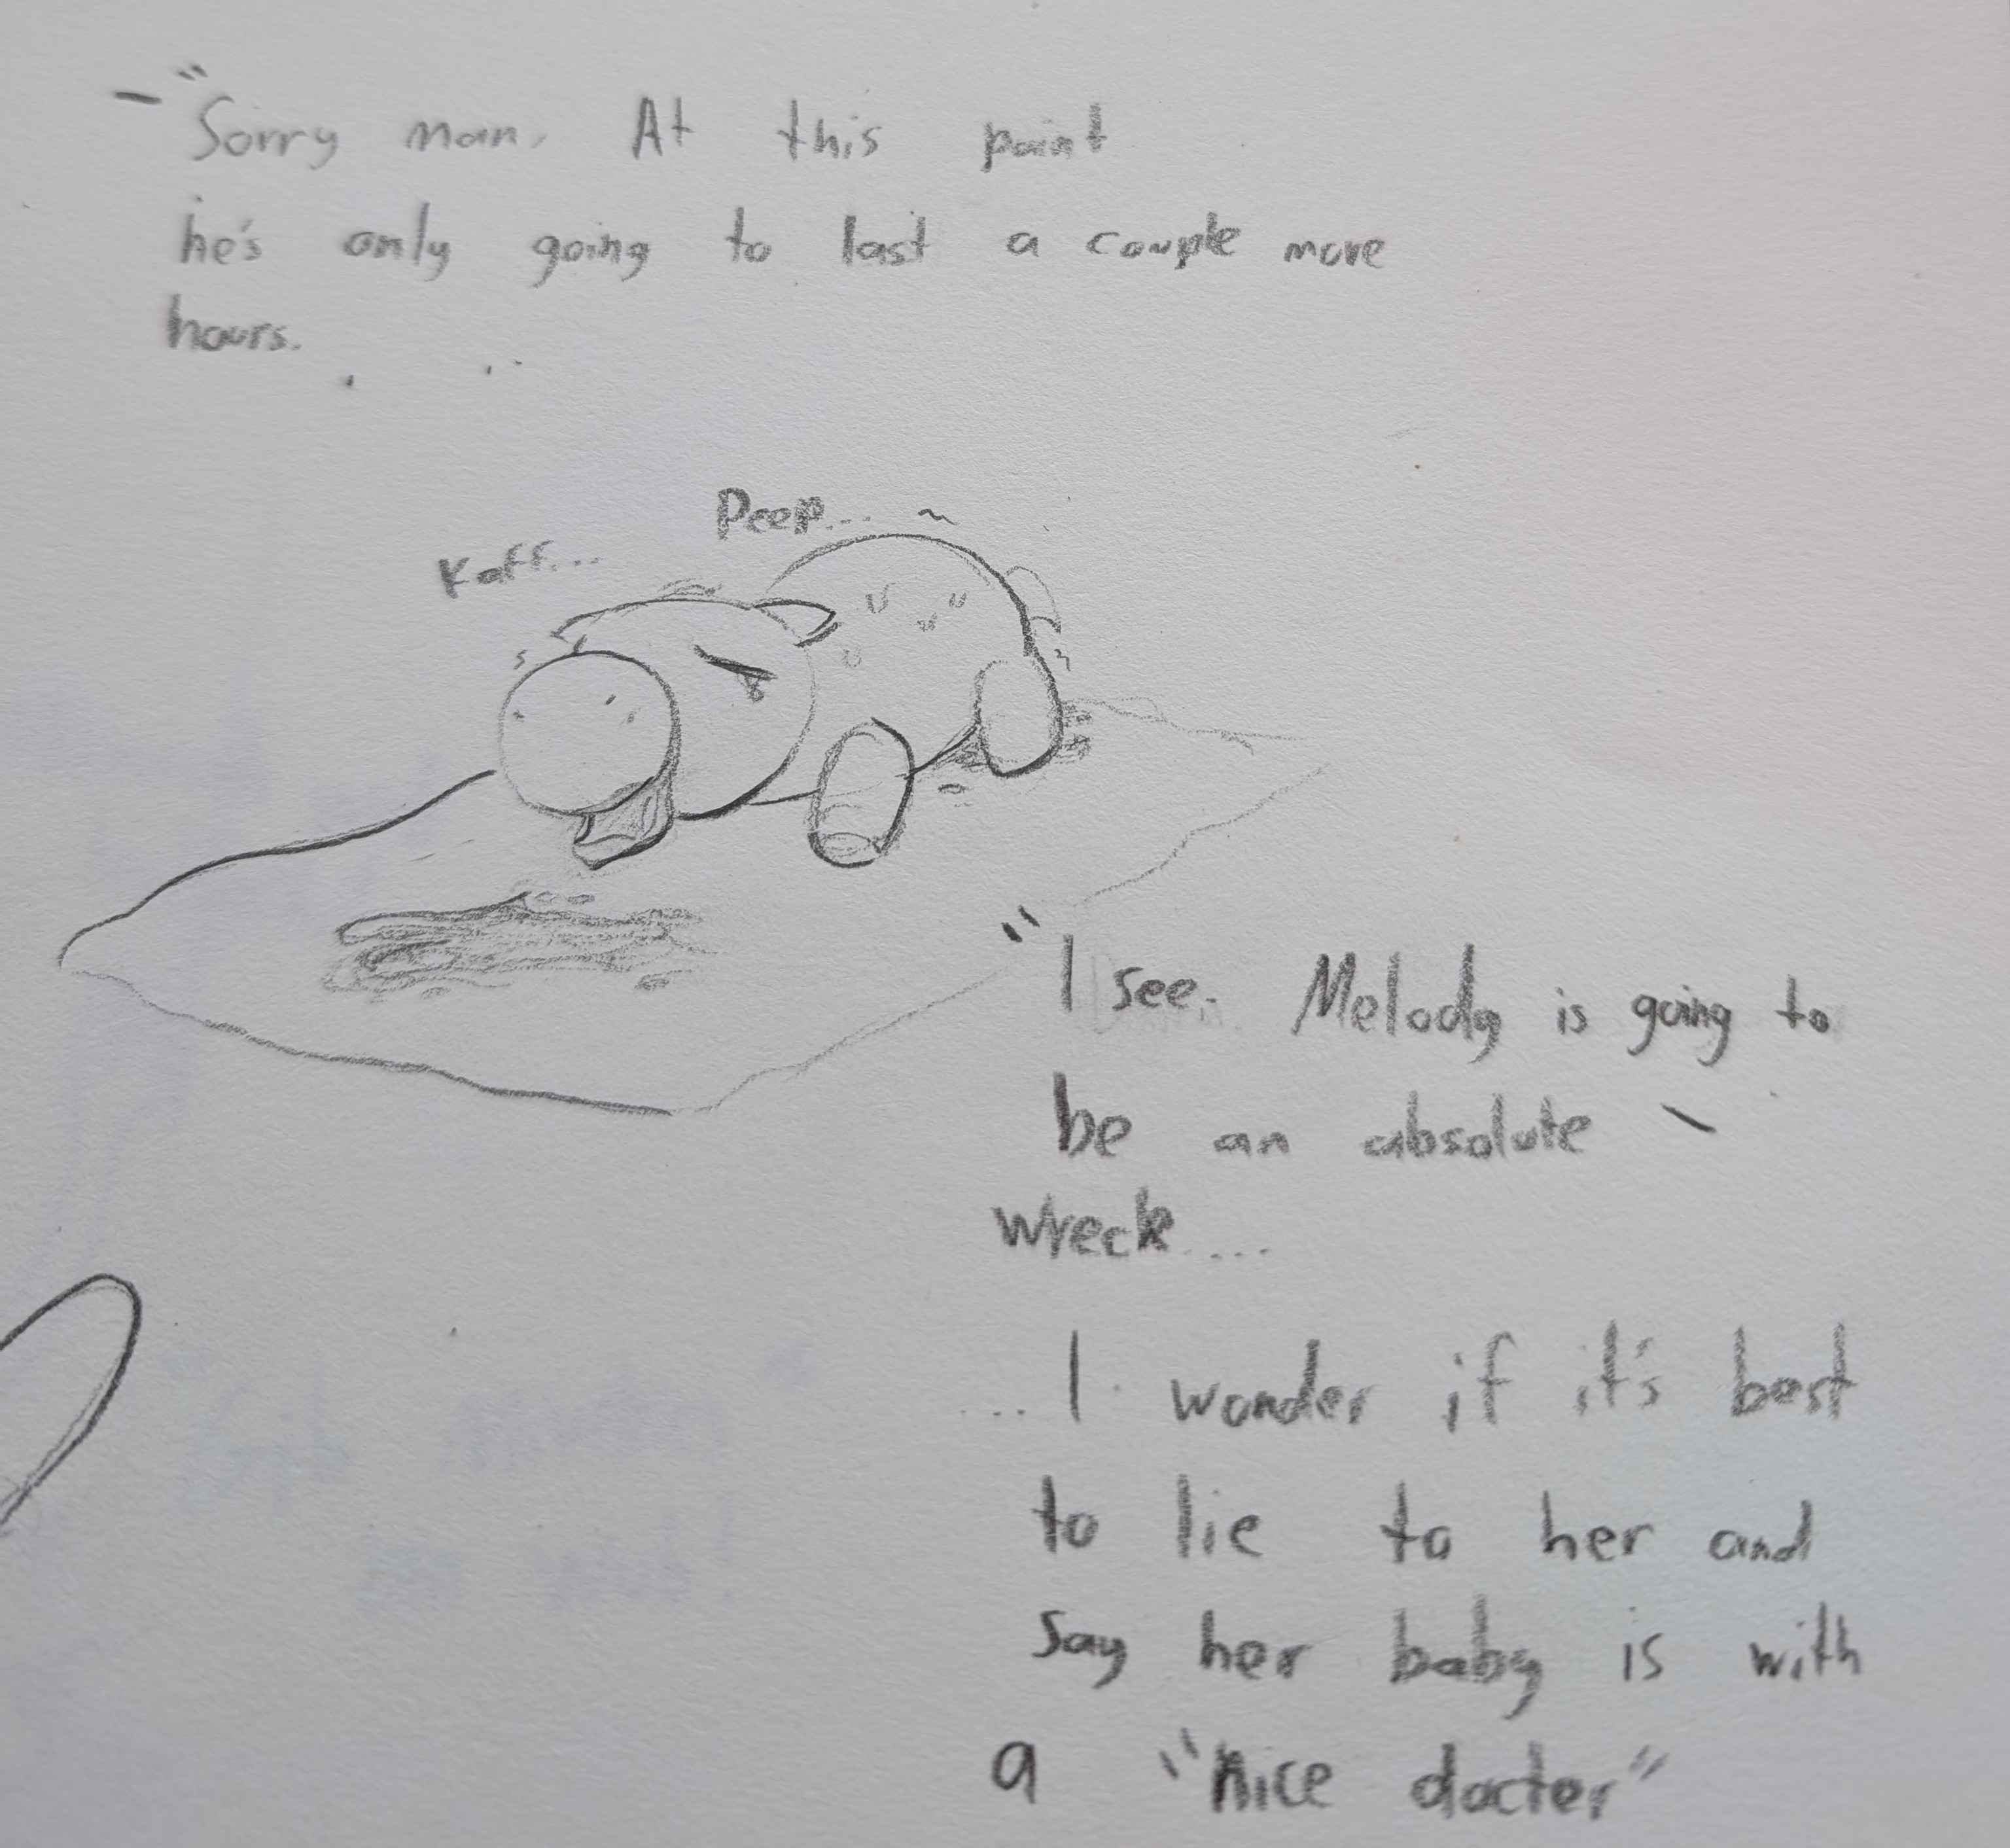 -"Sorry man. At this point
he's only going to last a couple more
hours.
Peep...
Kaff...
"I see. Melody is going to
be an absolute
wreck....
...I wonder if it's best
to lie to her and
say her baby is with
a "nice docter"